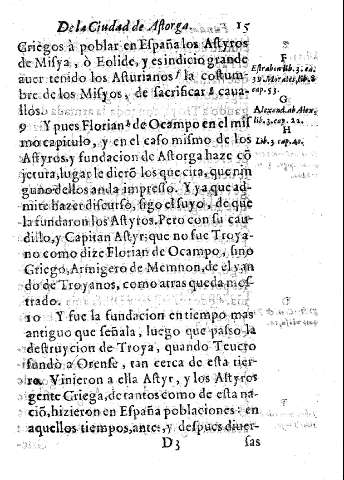 De la Ciudad de Astorga. 15
Griegos à poblar en España los Astyros
de Misya, ò Eolide, y es indicio grande
auer tenido los Asturianos f la costum-
bre de los Misyos, de sacrificar g caua-
llos.
9 Y pues Florian h de Ocampo en el mis
mo capitulo, y en el caso mismo de los
Astyros, y fundacion de Astorga haze cõ
jetura, lugar le dierõ los que cita, que nin
guno dellos anda impresso. Y ya que ad-
mite hazer discurso, sigo el suyo, de que
la fundaron los Astyros. Pero con su cau-
dillo, y Capitan Astyr: que no fue Troya-
no como dize Florian de Ocampo, sino
Griego, Armigero de Memnon, de el van
do de Troyanos, como atras queda mos-
trado.
10 Y fue la fundacion en tiempo mas
antiguo que señala, luego que passò la
destruycion de Troya, quando Teucro
fundò a Orense, tan cerca de esta tier-
ra. Vinieron a ella Astyr, y los Astyros
gente Griega, de tantos como de esta na-
ciõ, hizieron en España poblaciones: en
aquellos tiempos, antes, y despues diuer-
D3 sas
F
Estrabon lib. 3.
Morales, lib. 8
cap. 53.
G
Alexand. ab Alex.
lib. 3. cap. 22.
H
Lib. 3 cap. 40.